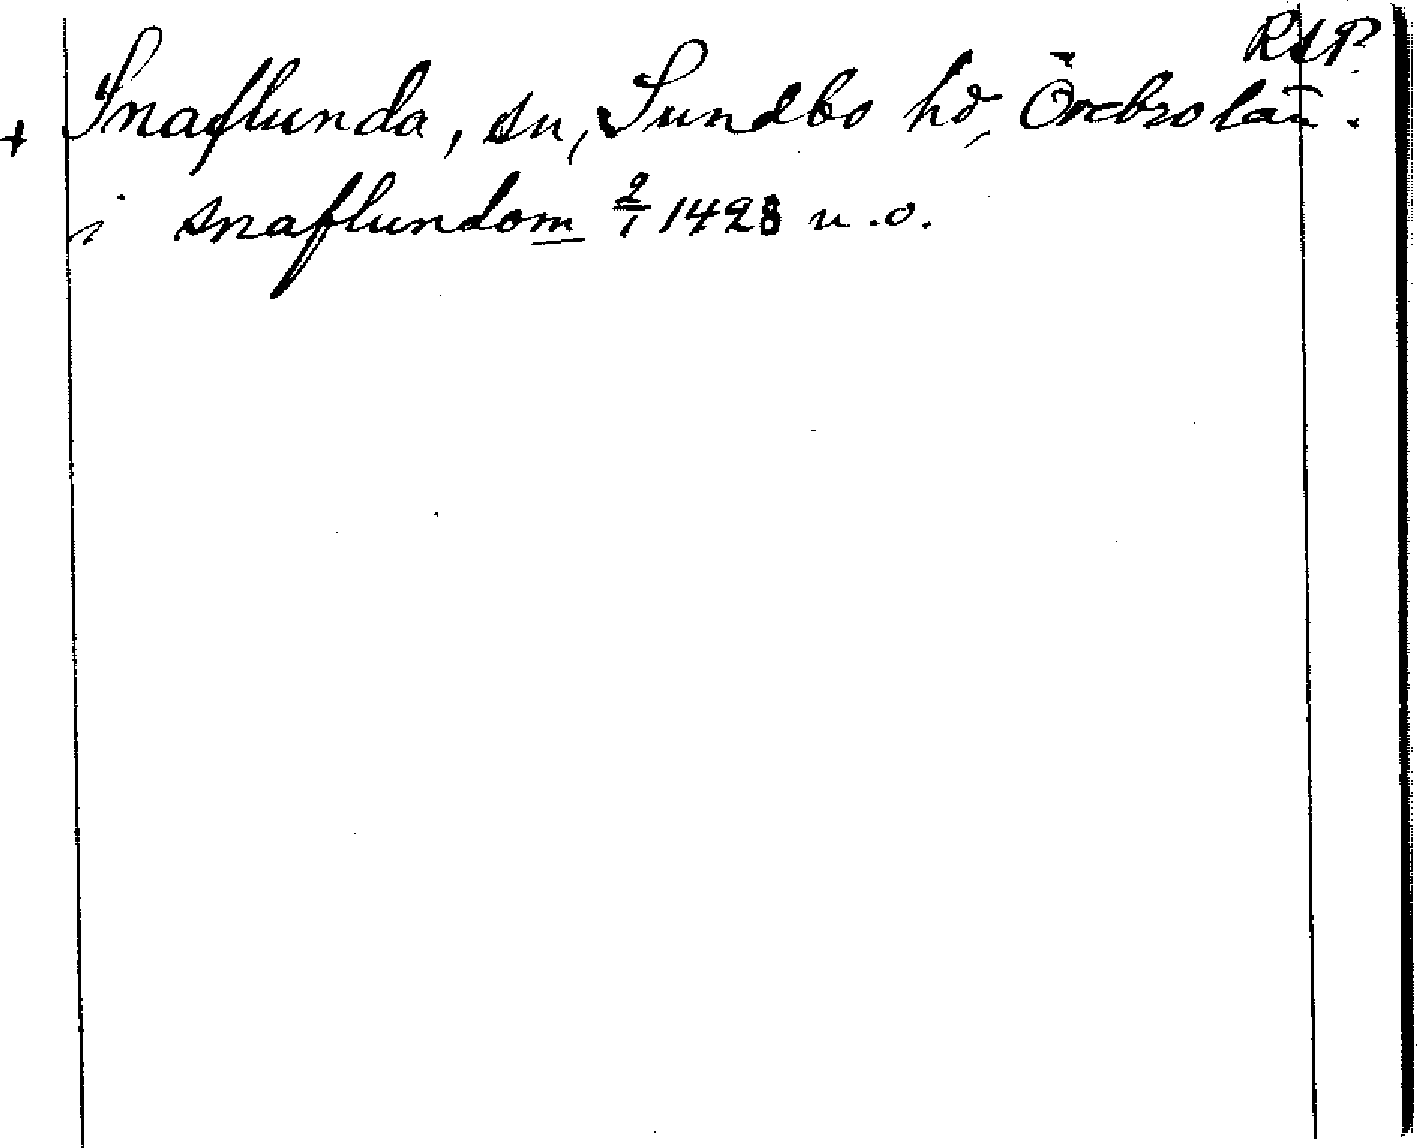 RAP.
+ Snaflunda, sn, Sundbo hd, Örebro län.
i snaflundom 2/1 1423 u.o.